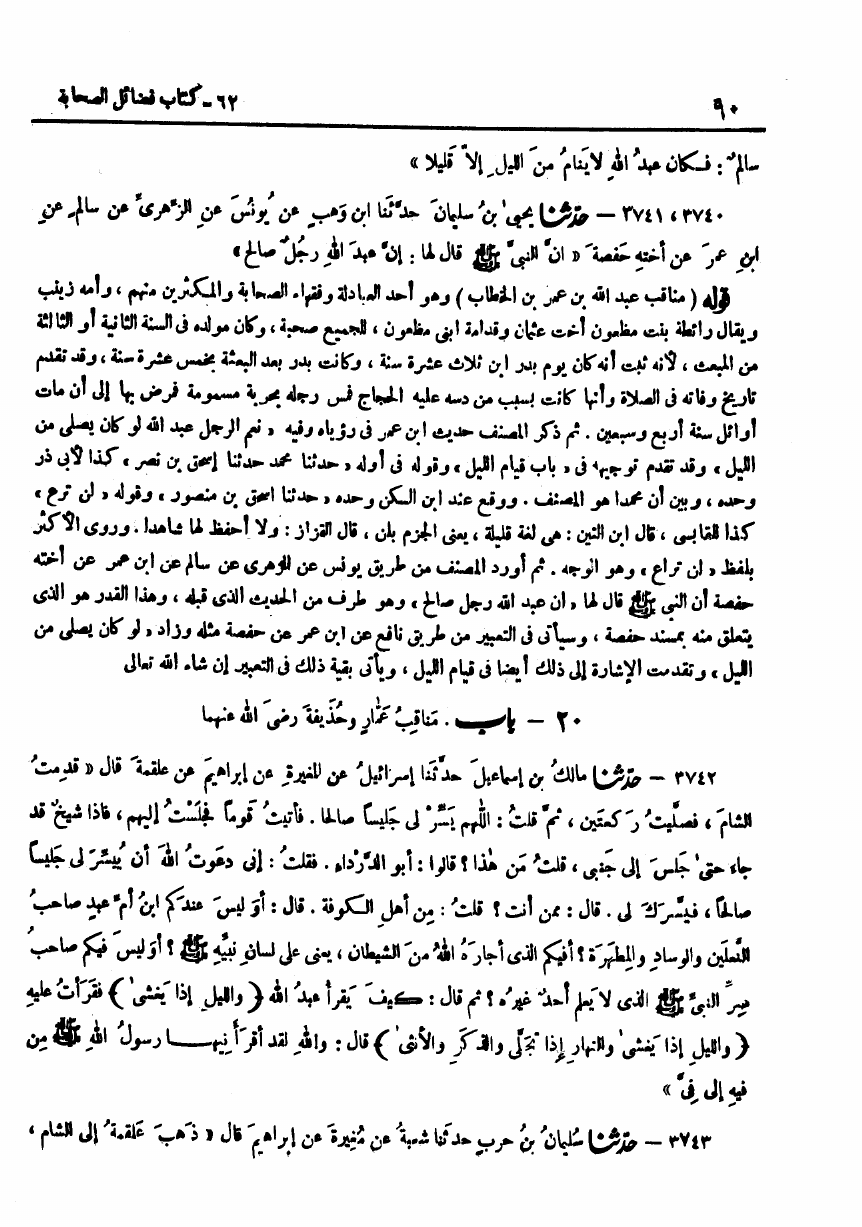 ٩٠ ٦٢ - كتاب فضائل الصحابة
سالمٌ : فكان عبدُ اللهِ لا ينَامُ منَ الليلِ إلاَّ قليلا »
٣٧٤٠ ، ٣٧٤١ - حدّثنا يحيىٰ بنُ سليمانَ حدَّثَنا ابن وَهبٍ عن يُونُسَ عنِ الزُّهرىِّ عن سالمٍ عنِ
ابنِ عمرَ عن أختهِ حَفصةَ « انَّ النبيَّ ﷺ قال لها : إنَّ عبدَ اللهِ رجُلٌ صالح »
قوله ( مناقب عبد الله بن عمر بن الخطاب ) وهو أحد العبادلة وفقهاء الصحابة والمكثرين منهم ، وأمه زينب
ويقال رائطة بنت مظعون أخت عثمان وقدامة ابنى مظعون ، للجميع صحبة ، وكان مولده فى السنة الثانية أو الثالثة
من المبعث ، لأنه ثبت أنه كان يوم بدر ابن ثلاث عشرة سنة ، وكانت بدر بعد البعثة بخمس عشرة سنة ، وقد تقدم
تاريخ وفاته فى الصلاة وأنها كانت بسبب من دسه عليه الحجاج فمس رجله بحربة مسمومة فمرض بها إلى أن مات
أوائل سنة أربع وسبعين . ثم ذكر المصنف حديث ابن عمر فى رؤياه وفيه « نعم الرجل عبد الله لو كان يصلى من
الليل ، وقد تقدم توجيهه فى « باب قيام الليل » وقوله فى أوله « حدثنا محمد حدثنا إسحق بن نصر » كذا لأبى ذر
وحده ، وبين أن محمدا هو المصنف . ووقع عند ابن السكن وحده « حدثنا اسحق بن منصور » وقوله « لن ترع »
كذا للقابسى ، قال ابن التين : هى لغة قليلة ، يعنى الجزم بلن ، قال القزاز : ولا أحفظ لها شاهدا . وروى الأكثر
بلفظ « لن تراع » وهو الوجه . ثم أورد المصنف من طريق يونس عن الزهرى عن سالم عن ابن عمر عن أخته
حفصة أن النبى ﷺ قال لها « ان عبد الله رجل صالح » وهو طرف من الحديث الذى قبله ، وهذا القدر هو الذى
يتعلق منه بمسند حفصة ، وسيأتى فى التعبير من طريق نافع عن ابن عمر عن حفصة مثله وزاد « لو كان يصلى من
الليل » وتقدمت الإشارة إلى ذلك أيضا فى قيام الليل ، ويأتى بقية ذلك فى التعبير إن شاء الله تعالى
٢٠ - باب . مَناقِبُ عَمَّارٍ وحُذَيفةَ رضىَ الله عنهما
٣٧٤٢ - حدّثنا مالكُ بن إسماعيلَ حدَّثَنا إسرائيلُ عن المغيرةِ عن إبراهيمَ عن علقمةَ قال « قدِمتُ
الشامَ ، فصلَّيتُ ركعتَين ، ثمَّ قلتُ : اللّهم يَسِّرْ لى جَليساً صالحا . فأتيتُ قوماً فجلَسْتُ إليهم ، فاذا شيخٌ قد
جاء حتىٰ جلَسَ إلى جَنبى ، قلتُ مَن هٰذا ؟ قالوا : أبو الدَّرْداءِ . فقلتُ : إنى دعَوتُ اللهَ أن يُيسِّرَ لى جَليساً
صالحاً ، فيسَّرَكَ لى . قال : ممن أنت ؟ قلتُ : مِن أهلِ الكوفة . قال : أوَ ليسَ عندَكم ابنُ أمِّ عبدٍ صاحبُ
النَّعلَينِ والوِسادِ والمِطهَرَة ؟ أفيكم الذى أجارَهُ اللهُ منَ الشيطان ، يعنى على لسانِ نبيِّهِ ﷺ ؟ أوَليسَ فيكم صاحبُ
سِرِّ النبيِّ ﷺ الذى لا يَعلم أحدٌ غيرُه ؟ ثم قال : كيفَ يَقرأ عبدُ الله ﴿ والليلِ إذا يَغشىٰ ﴾ فقَرَأتُ عليهِ
﴿ والليلِ إذا يَغشىٰ والنهارِ إِذا تجَلَّى والذكَرِ والأنثىٰ ﴾ قال : واللهِ لقد أقرَأَنِيها رسولُ اللهِ ﷺ مِن
فيهِ إلى فيَّ »
٣٧٤٣ - حدّثنا سُليمانُ بنُ حربٍ حدثَنا شعبةُ عن مُغيرةَ عن إبراهيمَ قال « ذهَبَ عَلقمةُ إلى الشام ،